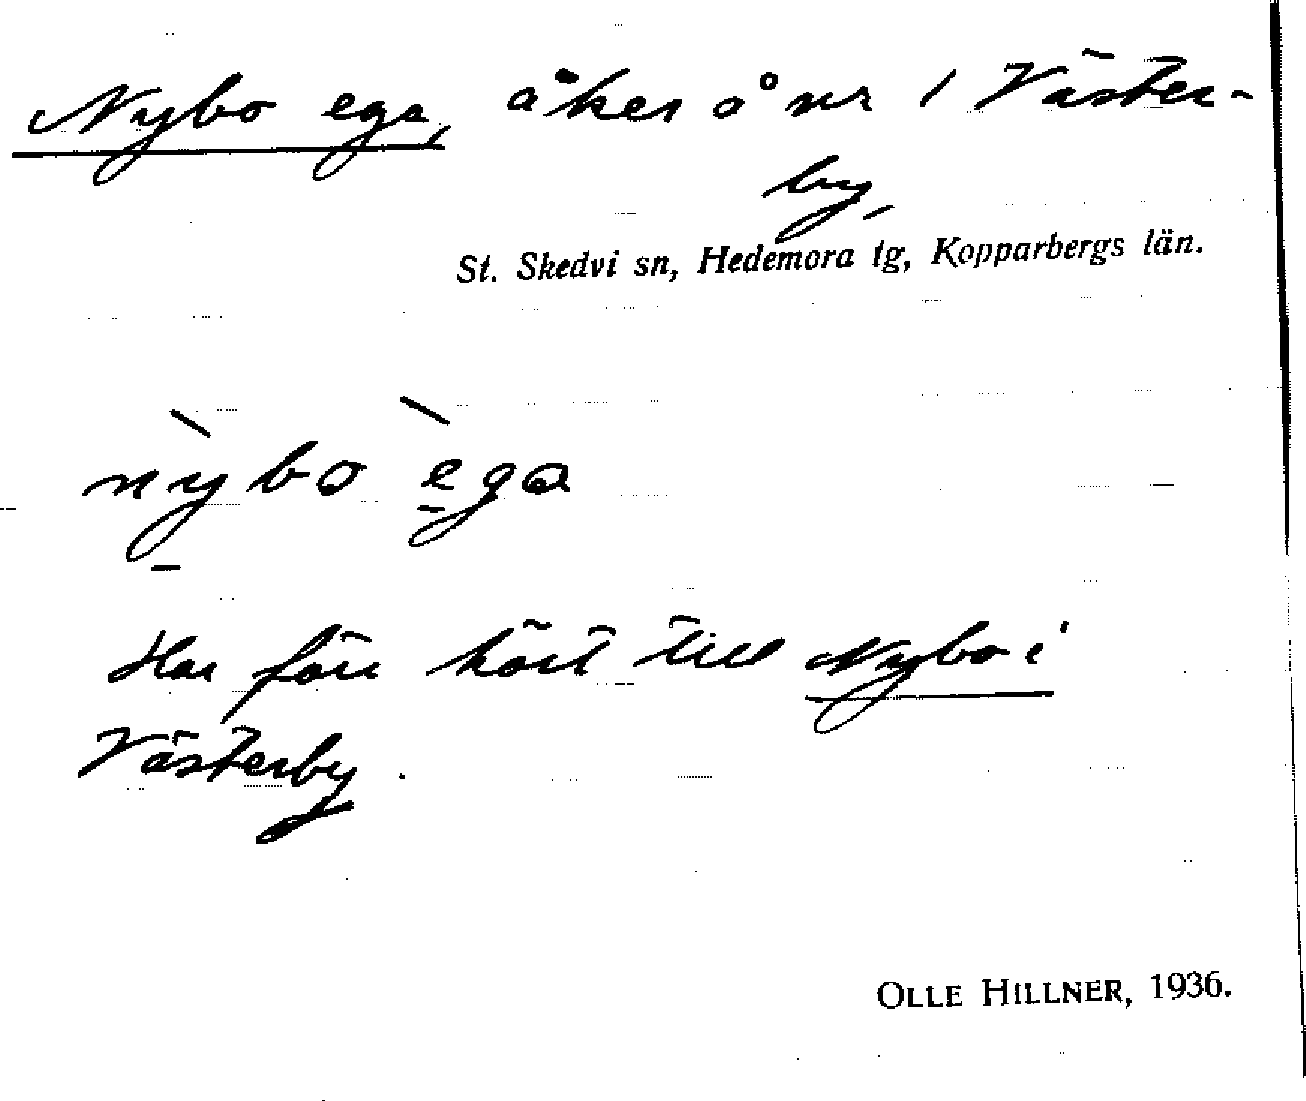 Nybo ega, åker å nr 1 Väster-
by,
St. Skedvi sn, Hedemora tg, Kopparbergs län.
nỳbo èga
Har förr hört till Nybo i
Västerby.
OLLE HILLNER, 1936.